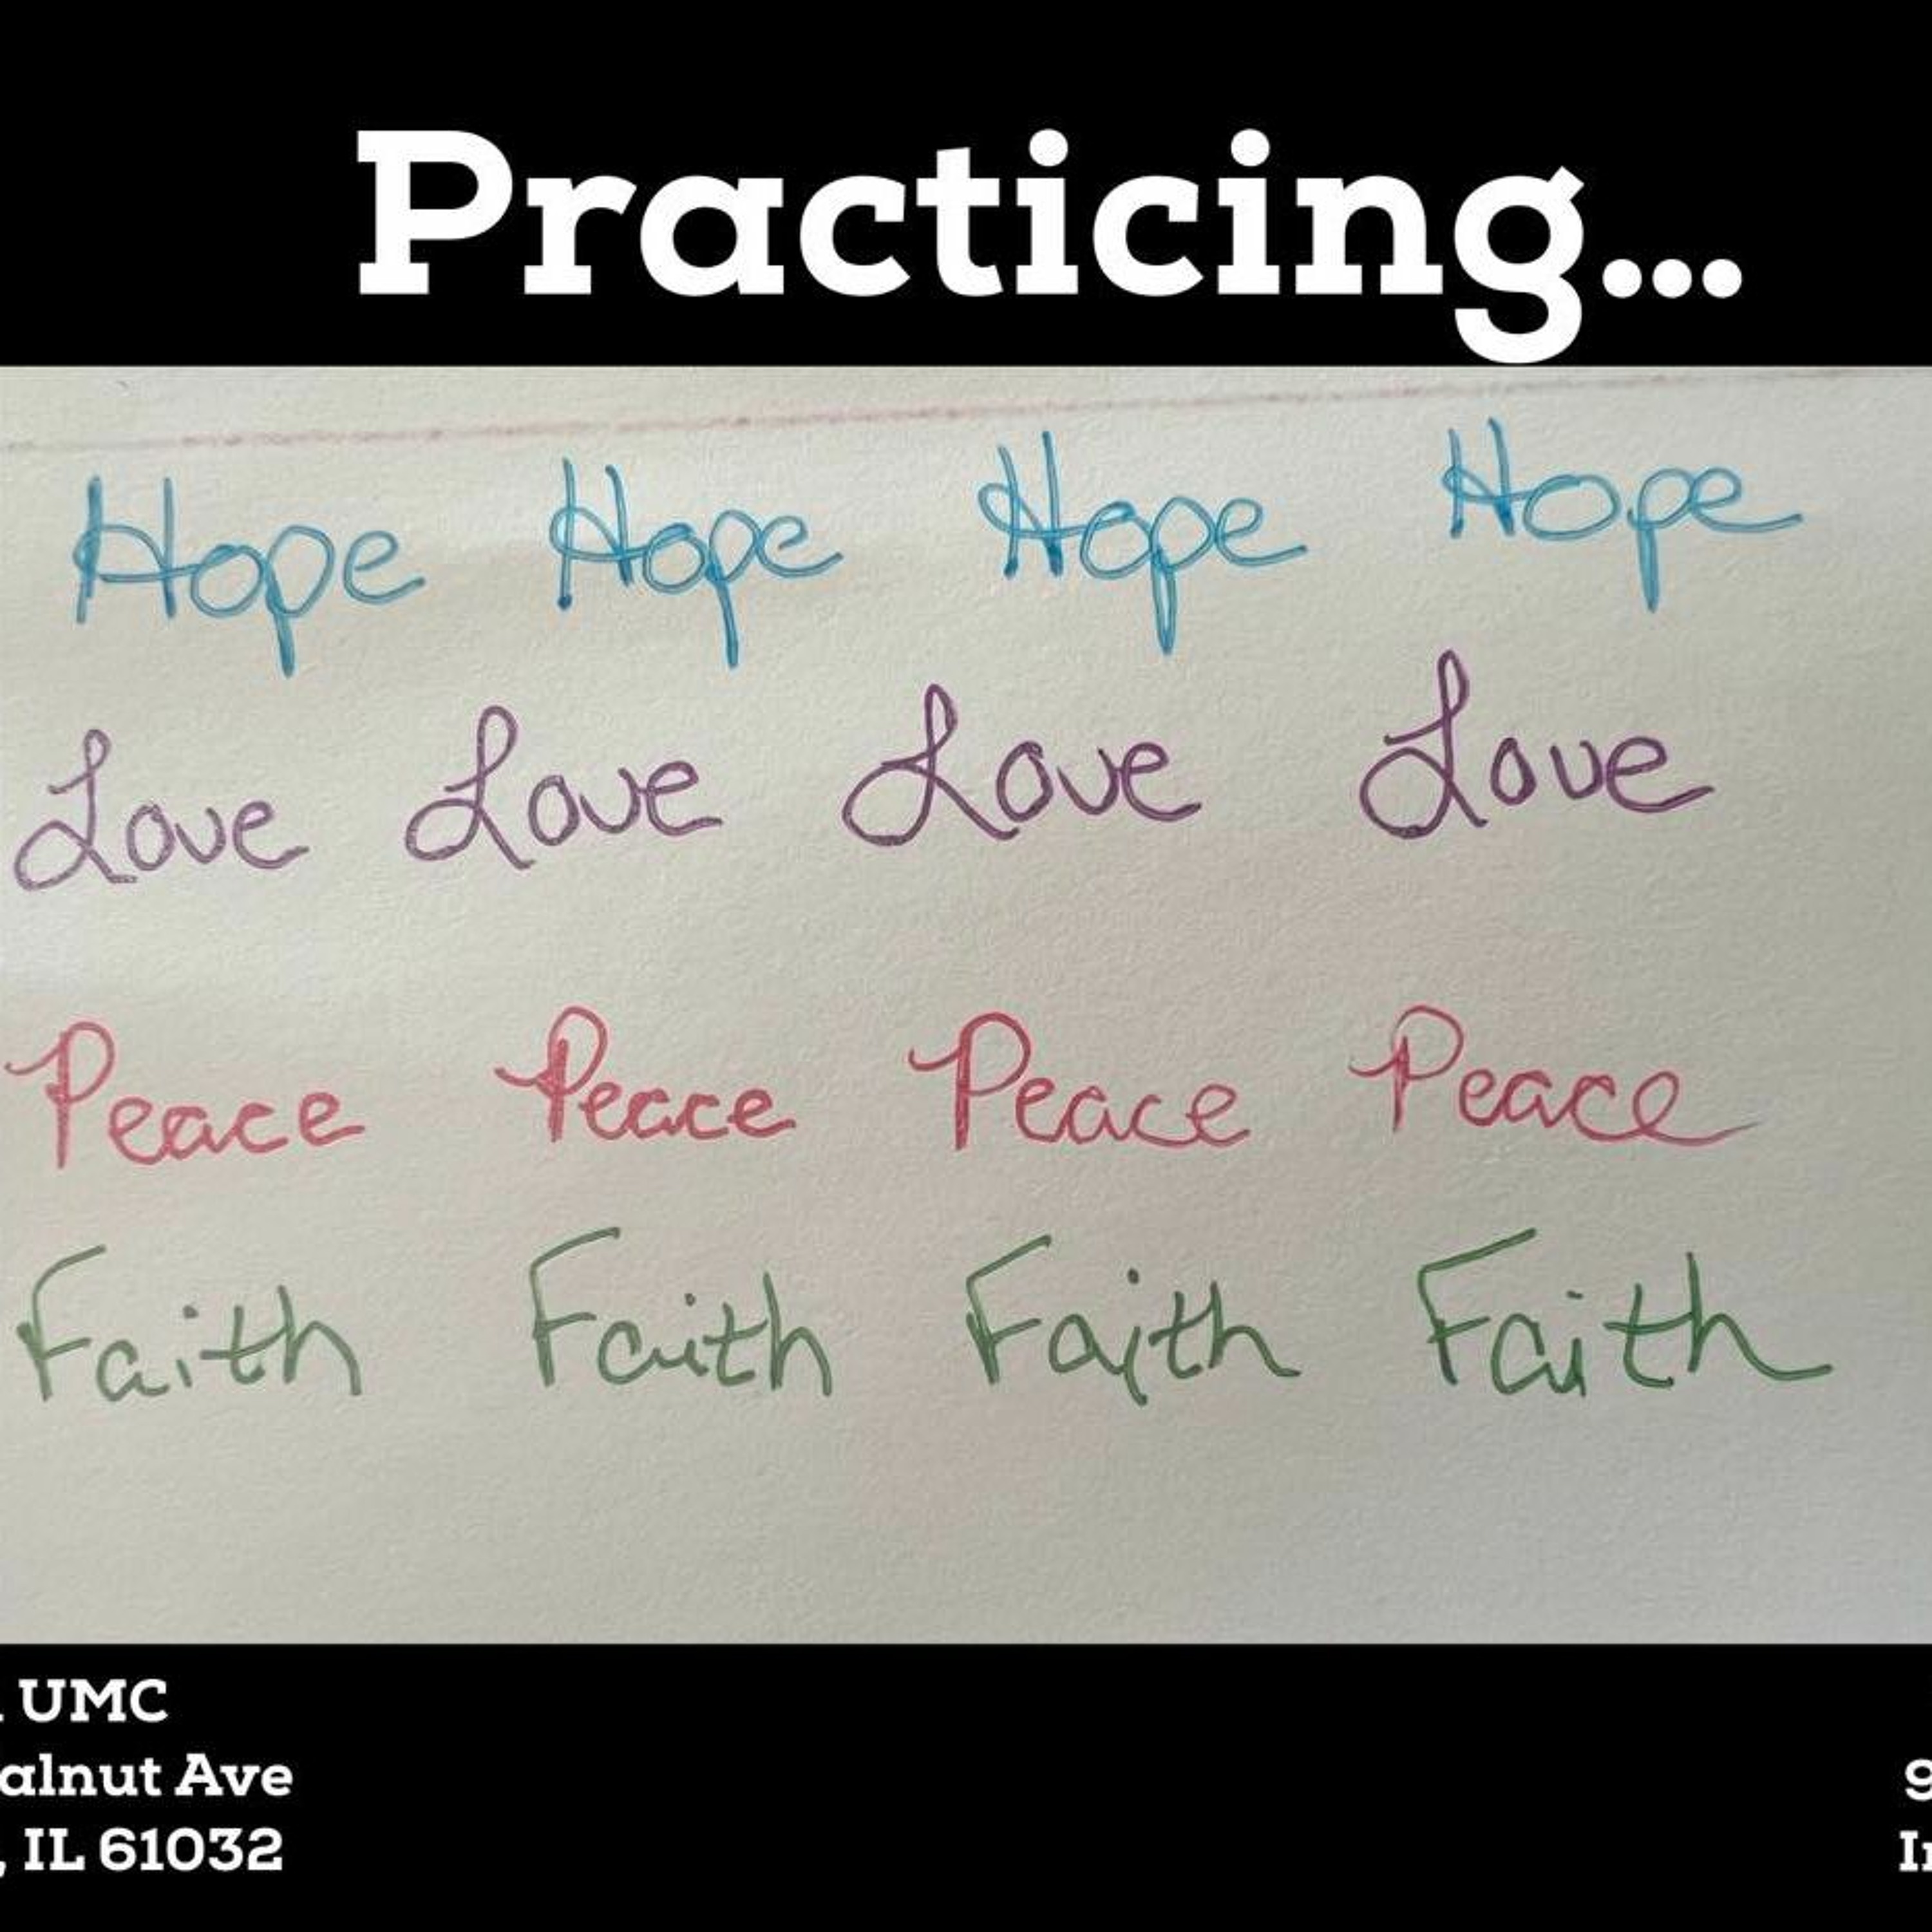 Practicing...
Hope Hope Hope Hope
Love Love Love Love
Peace Peace Peace Peace
Faith Faith Faith Faith
UMC
alnut Ave
, IL 61032
9